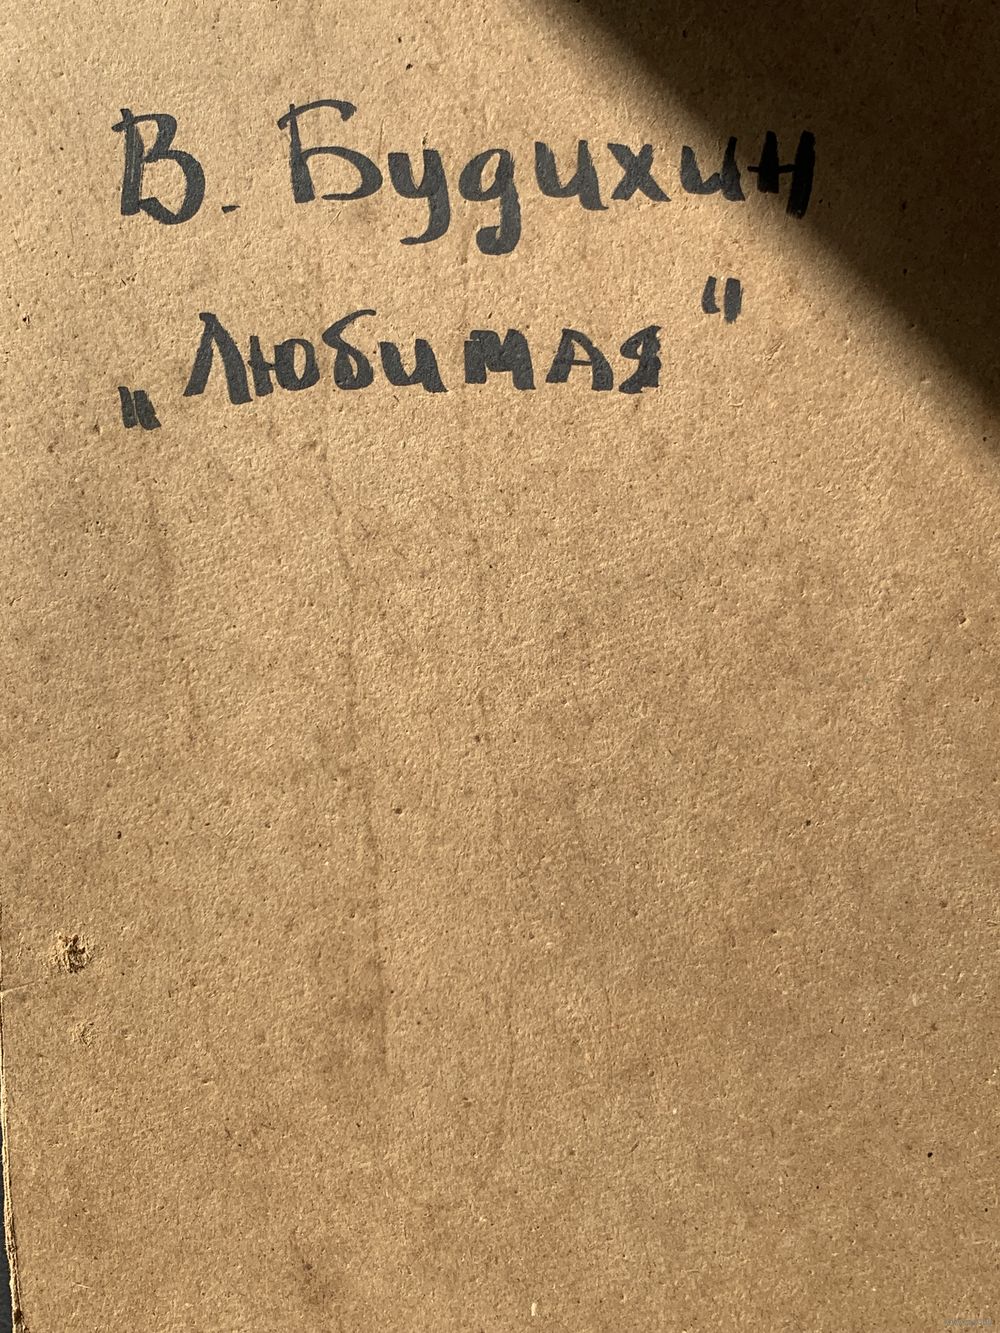 В. Будихин
„Любимая"